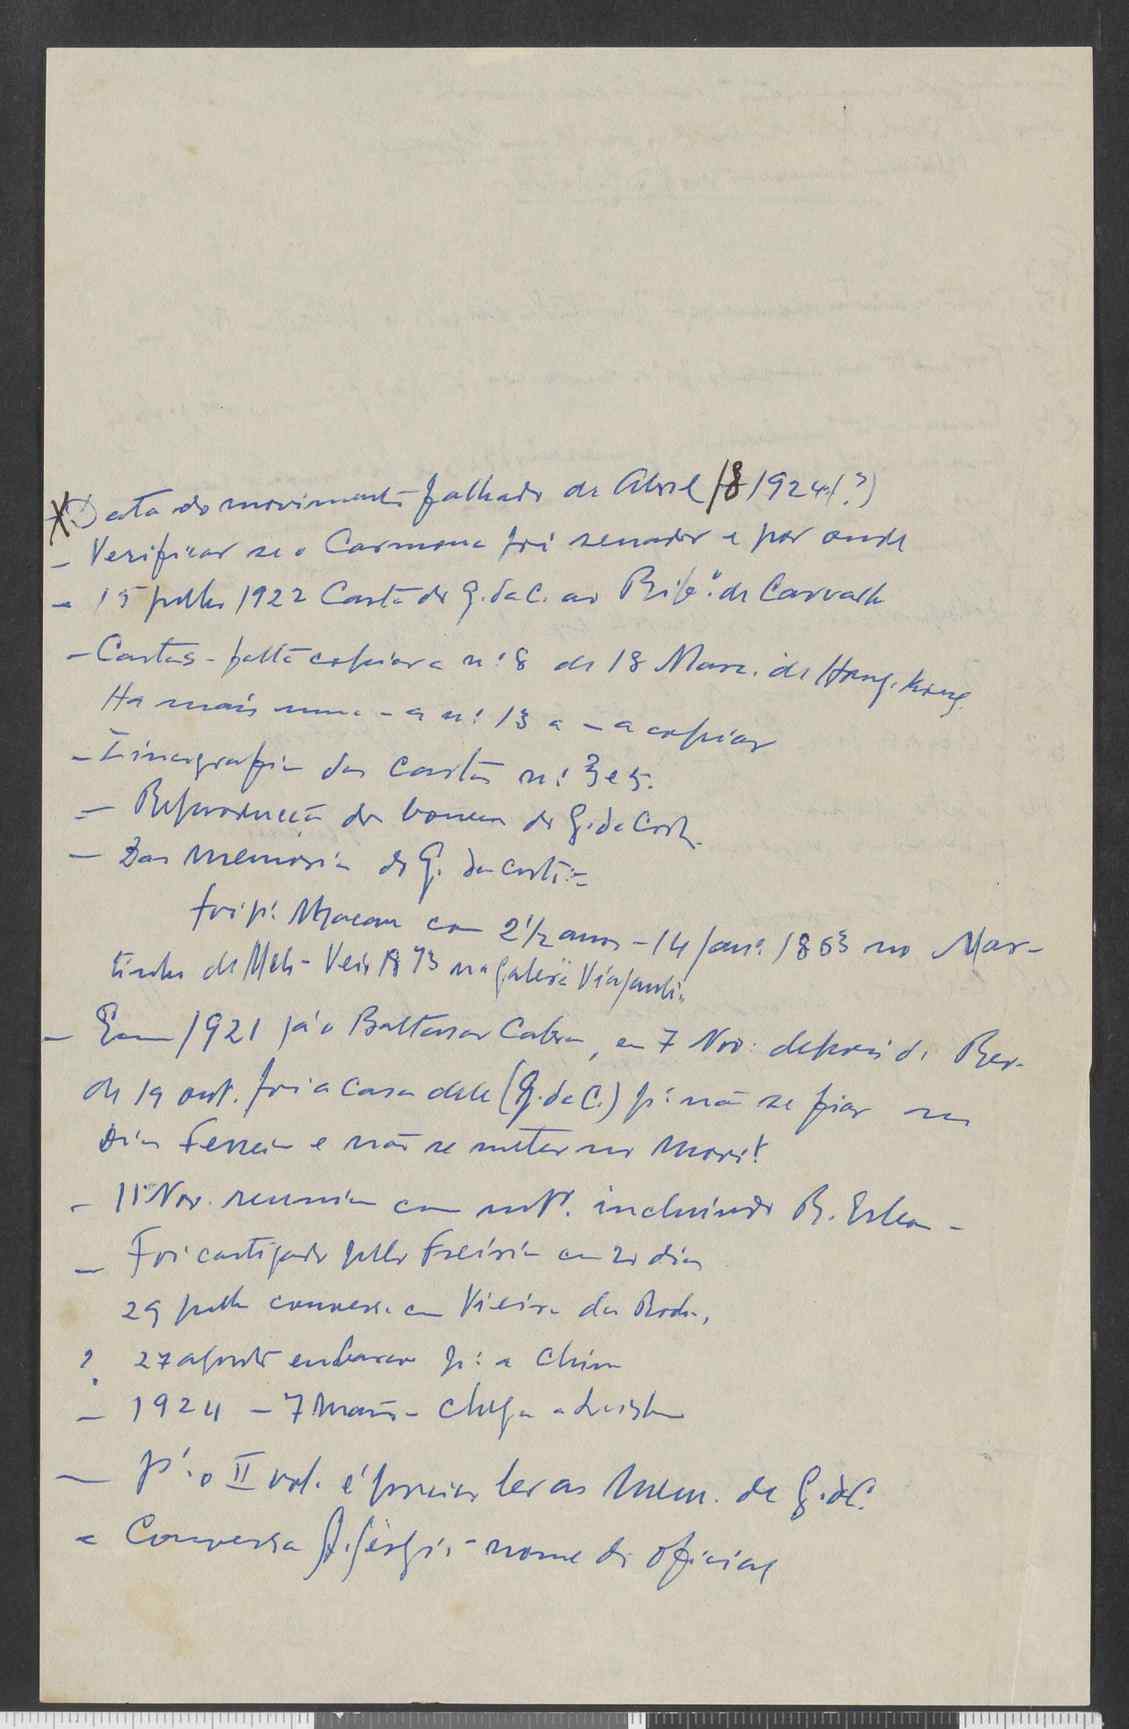 Data do movimento falhado de Abril 1924 (?)
- Verificar se o Carmona foi senador e por onde
- 15 julho 1922 Carta do G. da C. ao Ribº. de Carvalho
- Cartas - falta copiar a nº 8 de 18 Març. de Hong-Kong
Ha mais uma - a nº 13 a - a copiar
- Zincografia das cartas nº 3 e 5.
- Reproducção da G. da Costa
- Das memorias do G. da Costa:-
foi pª Macau com 2 1/2 anos - 14 Janº. 1863 no Mar-
tinho de Melo - Veio 1873 na galera Viajante
- Em 1921 já o Baltasar Cabral, em 7 Nov. depois da Rev.
de 19 out. foi a casa dele (G. da C.) pª não se fiar no
Dias Ferreira e não se meter no movº!
- 11 Nov. reunião com outº. incluindo B.
- Foi castigado pelo Freiria em 20 dias
29 julho conversa com Vieira da Rocha,
? 27 agosto embarcou pª a China
- 1924 - 7 Março - Chega a Lisboa
- pª o II vol. é preciso ler as Mem. de G. da C.
- Conversa A. Sérgio - nome do oficial